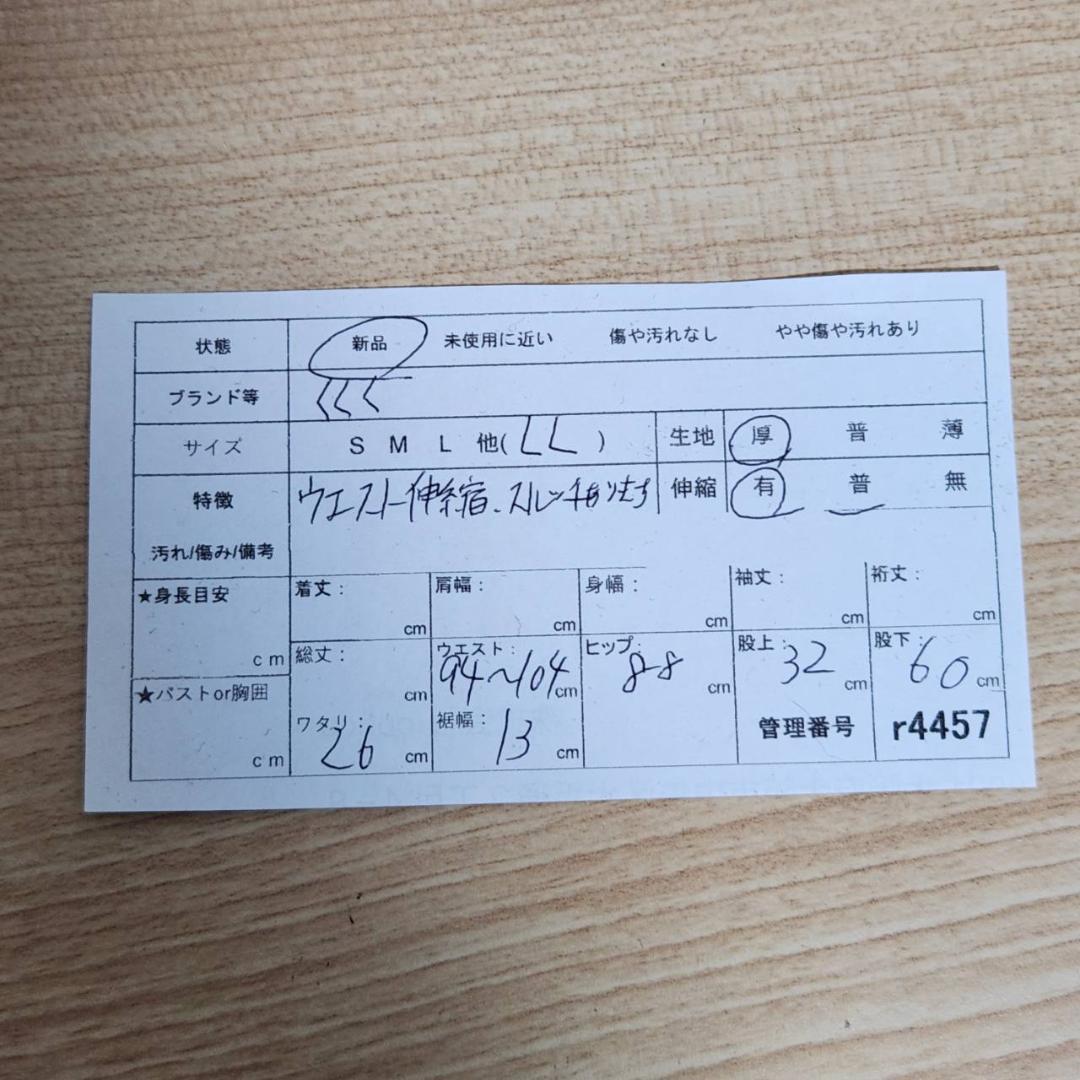 状態 新品 未使用に近い 傷や汚れなし やや傷や汚れあり
ブランド等
サイズ S M L 他( LL ) 生地 厚 普 薄
特徴 ウエスト伸縮、ストレッチあります 伸縮 有 普 無
汚れ/傷み/備考
★身長目安 cm 着丈： cm 肩幅： cm 身幅： cm 袖丈： cm 裄丈： cm
総丈： cm ウエスト： 94〜104 cm ヒップ： 88 cm 股上： 32 cm 股下： 60 cm
★バストor胸囲 cm ワタリ： 26 cm 裾幅： 13 cm 管理番号 r4457